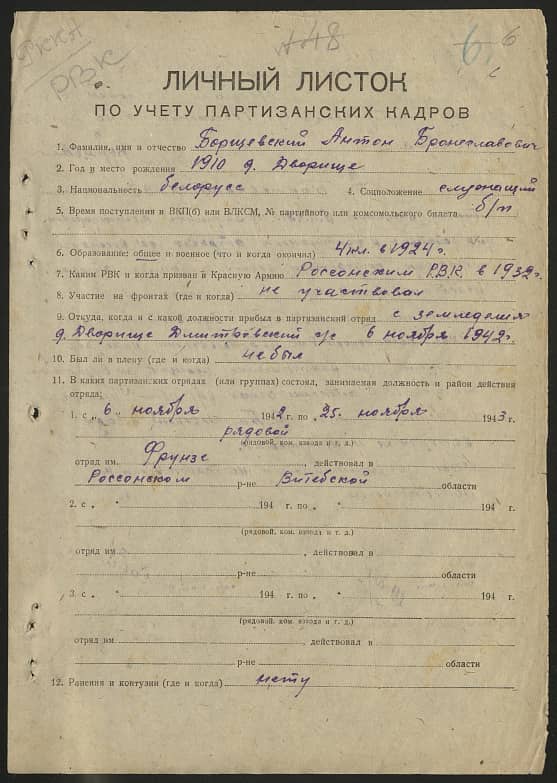 РККА
РВК
448
6. 6
ЛИЧНЫЙ ЛИСТОК
ПО УЧЕТУ ПАРТИЗАНСКИХ КАДРОВ
1. Фамилия, имя и отчество Борщевский Антон Брониславович
2. Год и место рождения 1910 д. Дворище
3. Национальность белорусс 4. Соцположение служащий
5. Время поступления в ВКП(б) или ВЛКСМ, № партийного или комсомольского билета б/п
6. Образование: общее и военное (что и когда окончил) 4 кл. в 1924 г.
7. Каким РВК и когда призван в Красную Армию Россонским РВК в 1932 г.
8. Участие на фронтах (где и когда) не участвовал
9. Откуда, когда и с какой должности прибыл в партизанский отряд с земледелия
д. Дворище Дмитровский с/с 6 ноября 1942 г.
10. Был ли в плену (где и когда) не был
11. В каких партизанских отрядах (или группах) состоял, занимаемая должность и район действия
отряда:
1. с „6 ноября 1942 г. по „25. ноября 1943 г.
рядовой
(рядовой, ком. взвода и т. д.)
отряд им. Фрунзе, действовал в
Россонском р-не Витебской области
2. с „ " 194 г. по „ " 194 г.
(рядовой, ком. взвода и т. д.)
отряд им , действовал в
р-не области
3. с „ " 194 г. по „ " 194 г.
(рядовой, ком. взвода и т. д.)
отряд им , действовал в
р-не области
12. Ранения и контузии (где и когда) нету